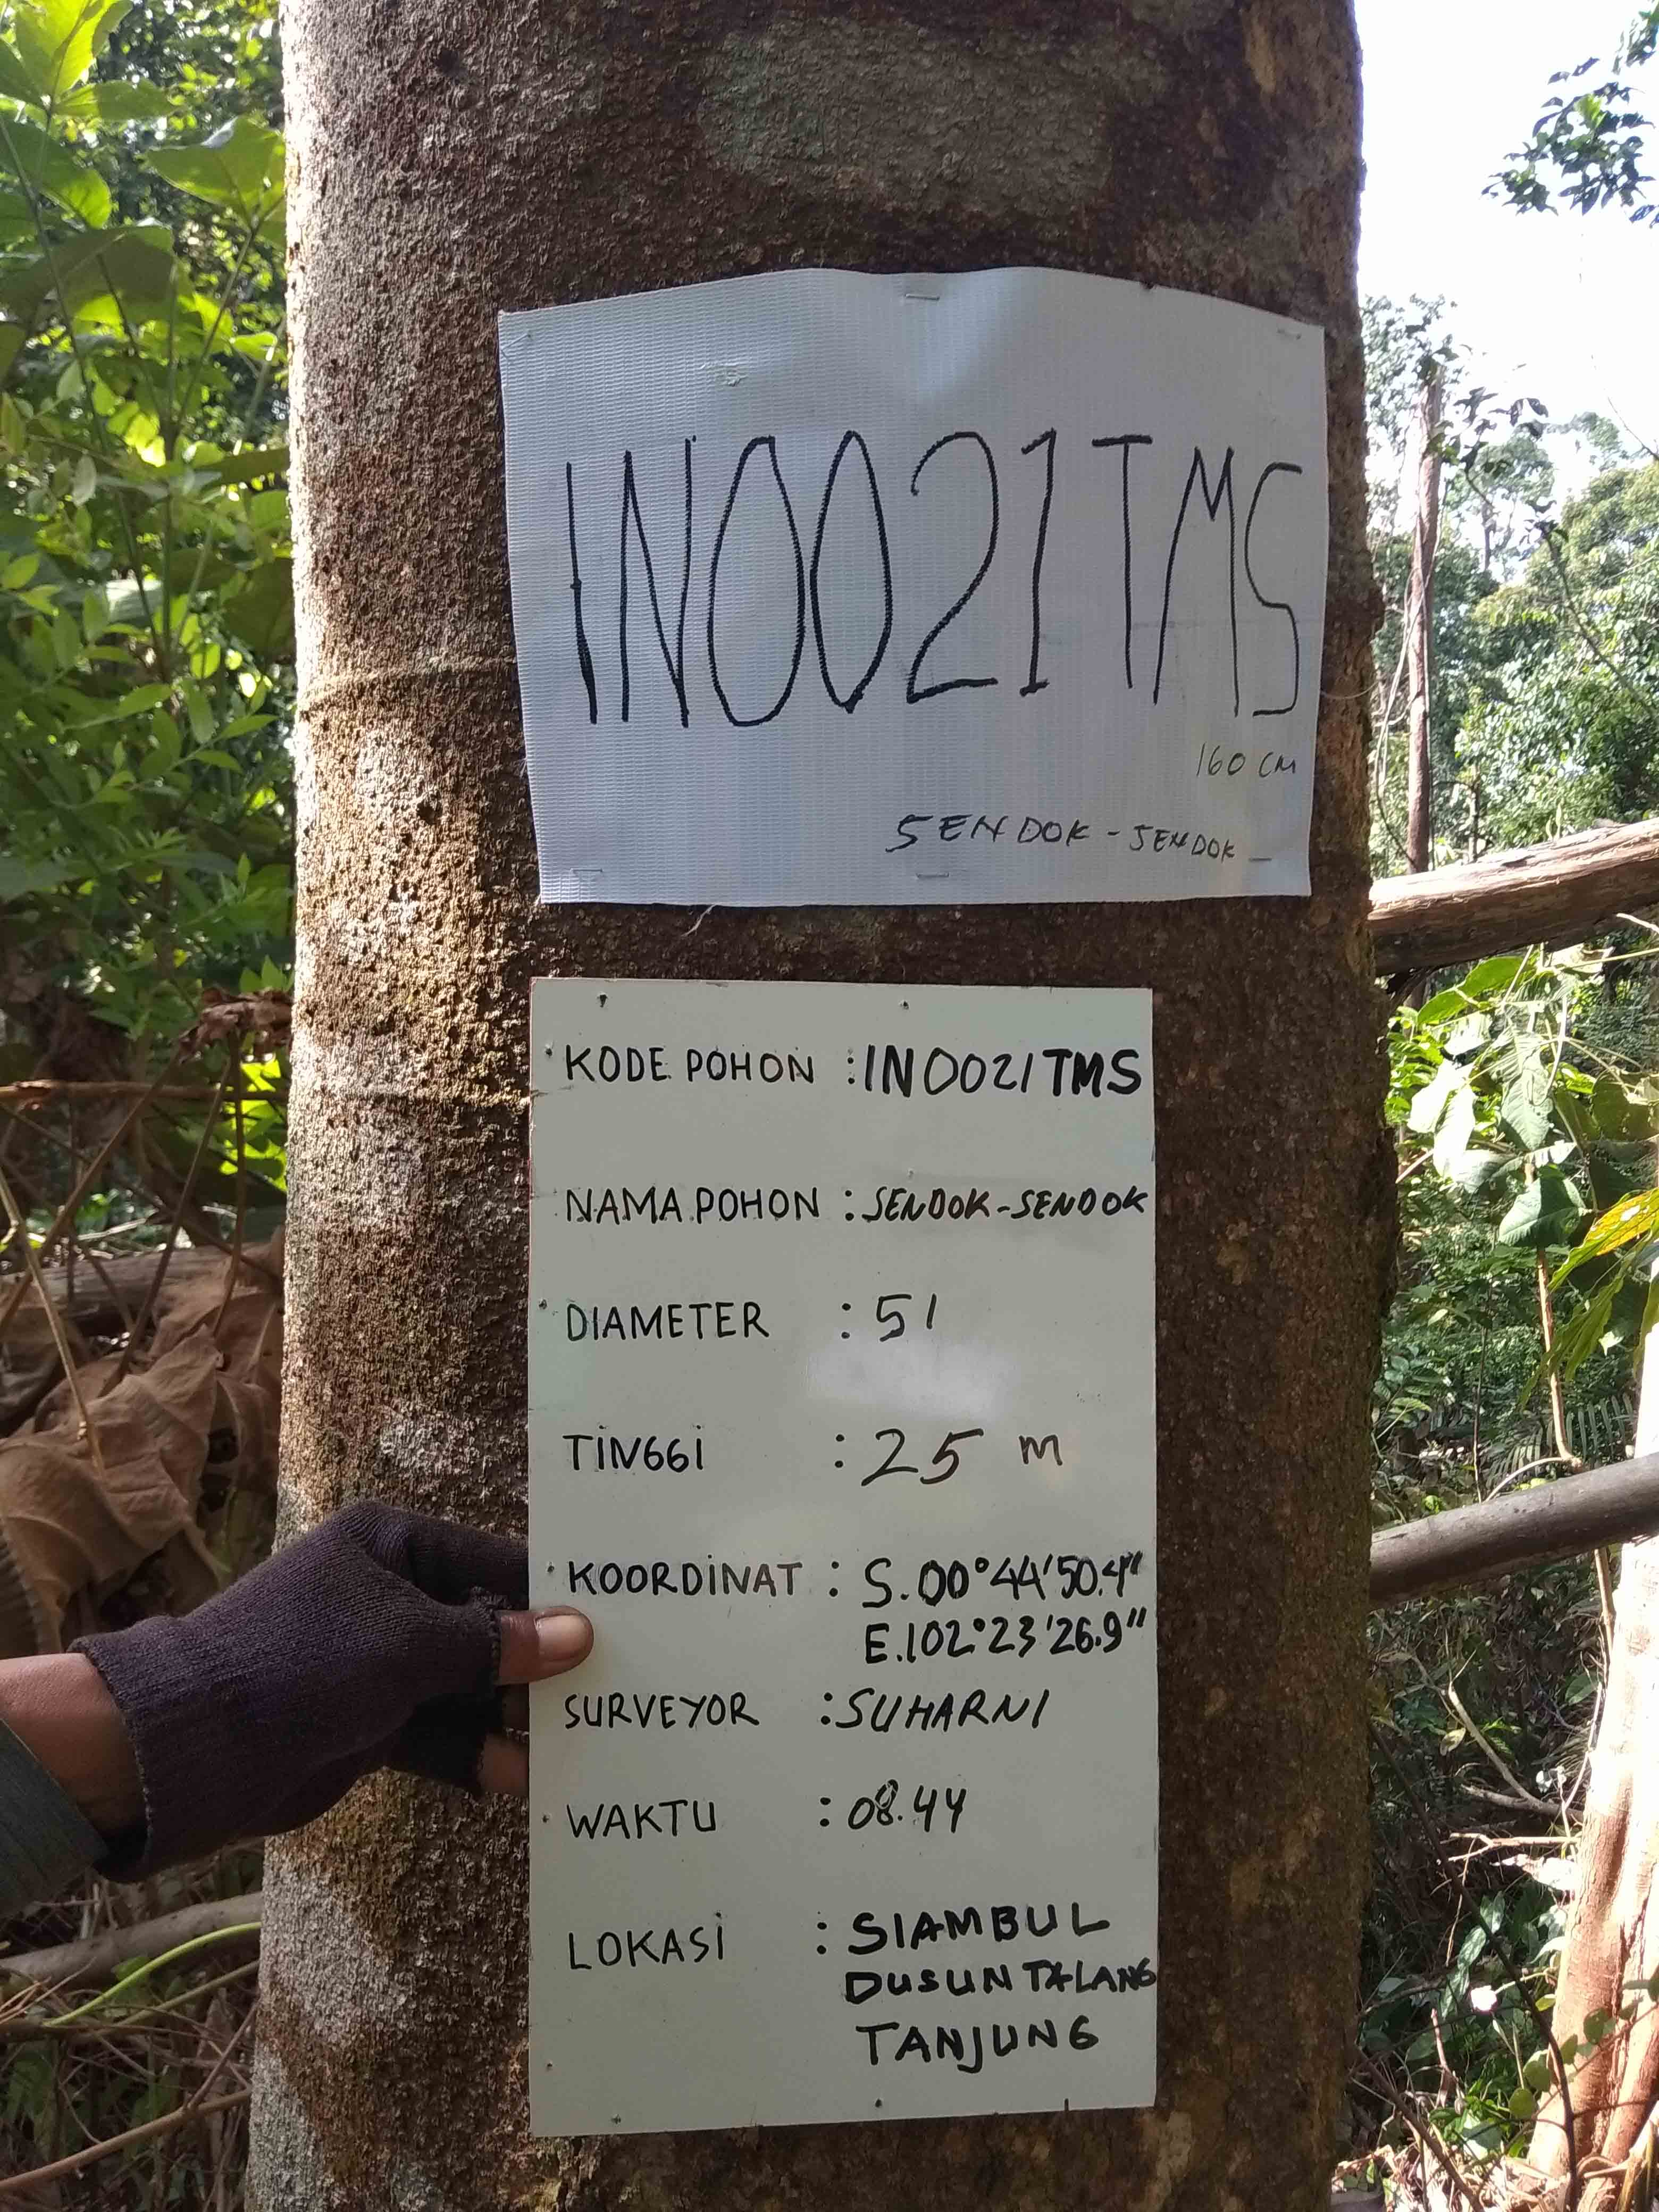 IN0021TMS
160 CM
SENDOK - SENDOK
KODE POHON : IN0021TMS
NAMA POHON : SENDOK-SENDOK
DIAMETER : 51
TINGGI : 25 m
KOORDINAT : S.00°44'50.4"
E.102°23'26.9"
SURVEYOR : SUHARNI
WAKTU : 08.44
LOKASI : SIAMBUL
DUSUN TALANG
TANJUNG